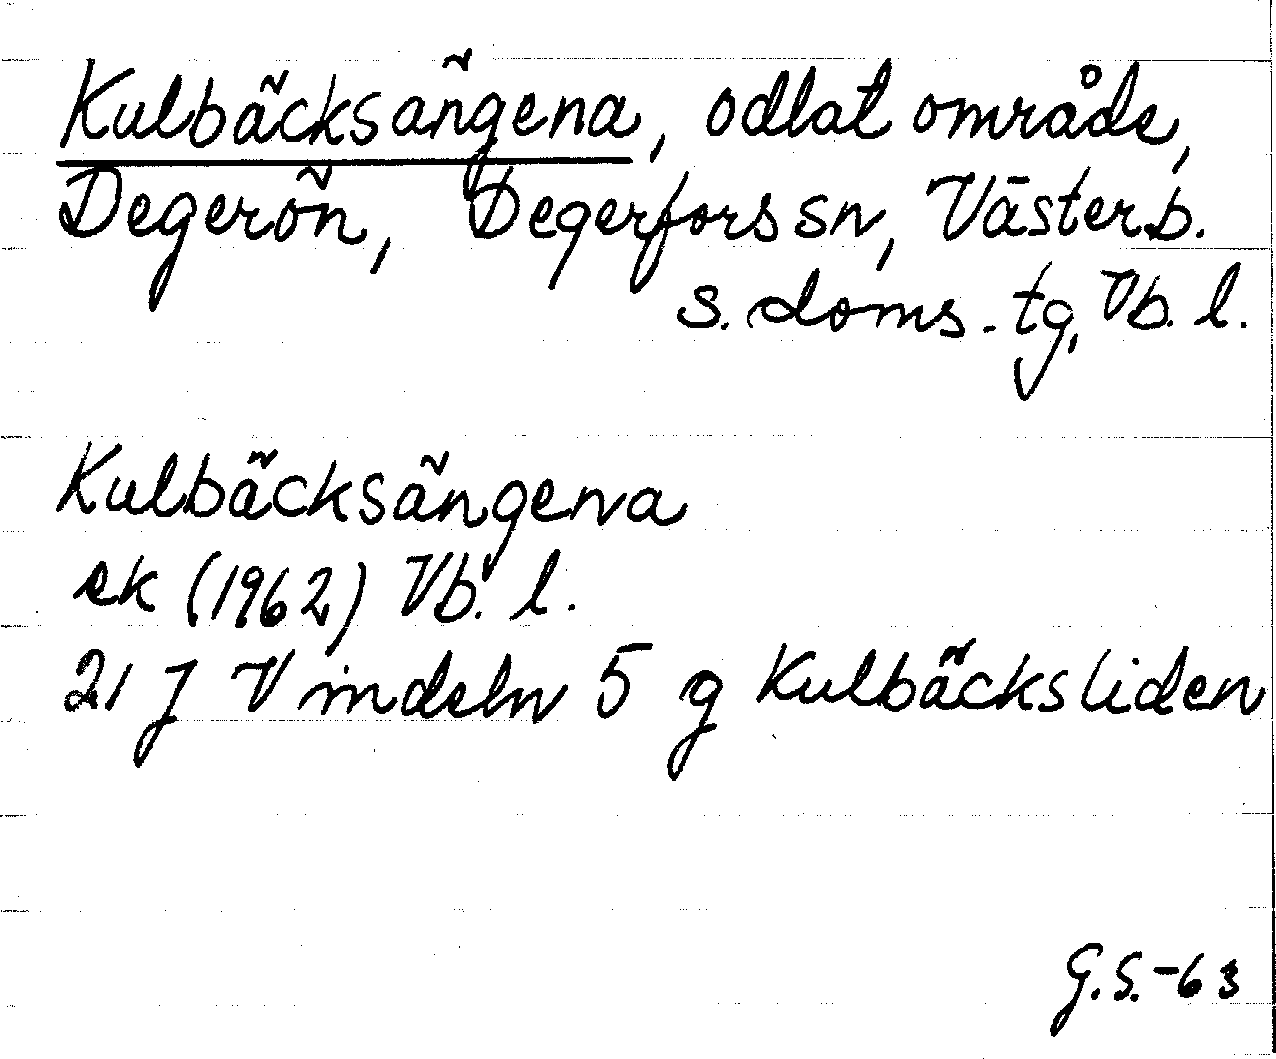 Kulbäcksängena, odlat område,
Degerön, Degerfors sn, Västerb.
s. doms. tg, Vb. l.
Kulbäcksängena
ek (1962) Vb. l.
21 J Vindeln 5 g Kulbäcksliden
G.S.-63